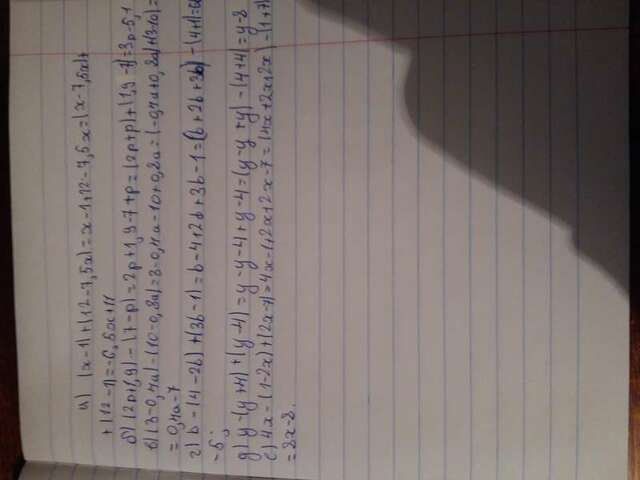 а) (x-1)+(12-7,5x)=x-1+12-7,5x=(x-7,5x)+
+(12-1)=-6,5x+11
б) (2p+1,9)-(7-p)=2p+1,9-7+p=(2p+p)+(1,9-7)=3p-5,1
в) (3-0,4a)-(10-0,8a)=3-0,4a-10+0,8a=(-0,4a+0,8a)+(3-10)=
=0,4a-7
г) b-(4-2b)+(3b-1)=b-4+2b+3b-1=(b+2b+3b)-(4+1)=6b
-5;
д) y-(y+4)+(y-4)=y-y-4+y-4=(y-y+y)-(4+4)=y-8
е) 4x-(1-2x)+(2x-7)=4x-1+2x+2x-7=(4x+2x+2x)-(1+7)
=8x-8.